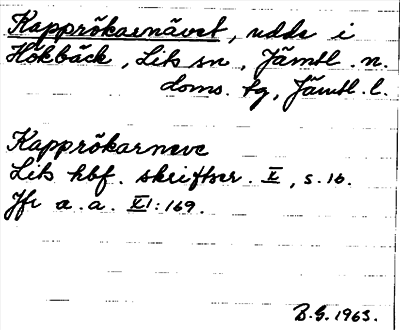 Kapprökarnävet, udde i
Hökbäck, Lits sn, Jämtl. n.
doms. tg, Jämtl. l.
Kapprökarneve
Lits hbf. skriftser. II, s. 16.
Jfr a. a. XI: 169.
B.G. 1963.